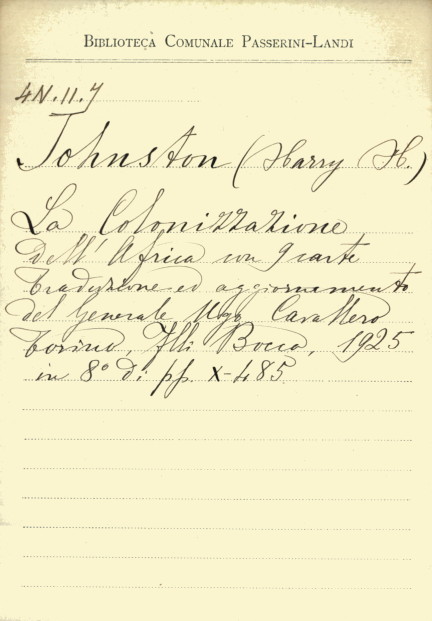 BIBLIOTECA COMUNALE PASSERINI-LANDI
4N.11.7
Johnston (Harry H.)
La Colonizzazione
dell'Africa con 9 carte
Traduzione ed aggiornamento
del Generale Ugo Cavallero
Torino, Flli Bocca, 1925
in 8° di pp. X-485